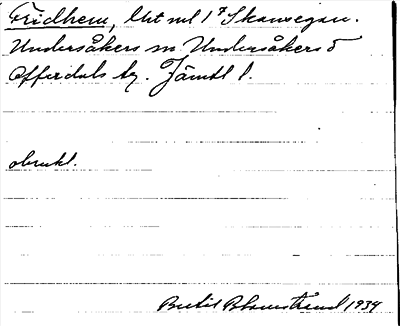 Fridhem, lht nl 1⁸ Skansegan.
Undersåkers sn Undersåkers o
Offerdals tg. Jämtl l.
obrukl.
Bertil Blomstrand 1934